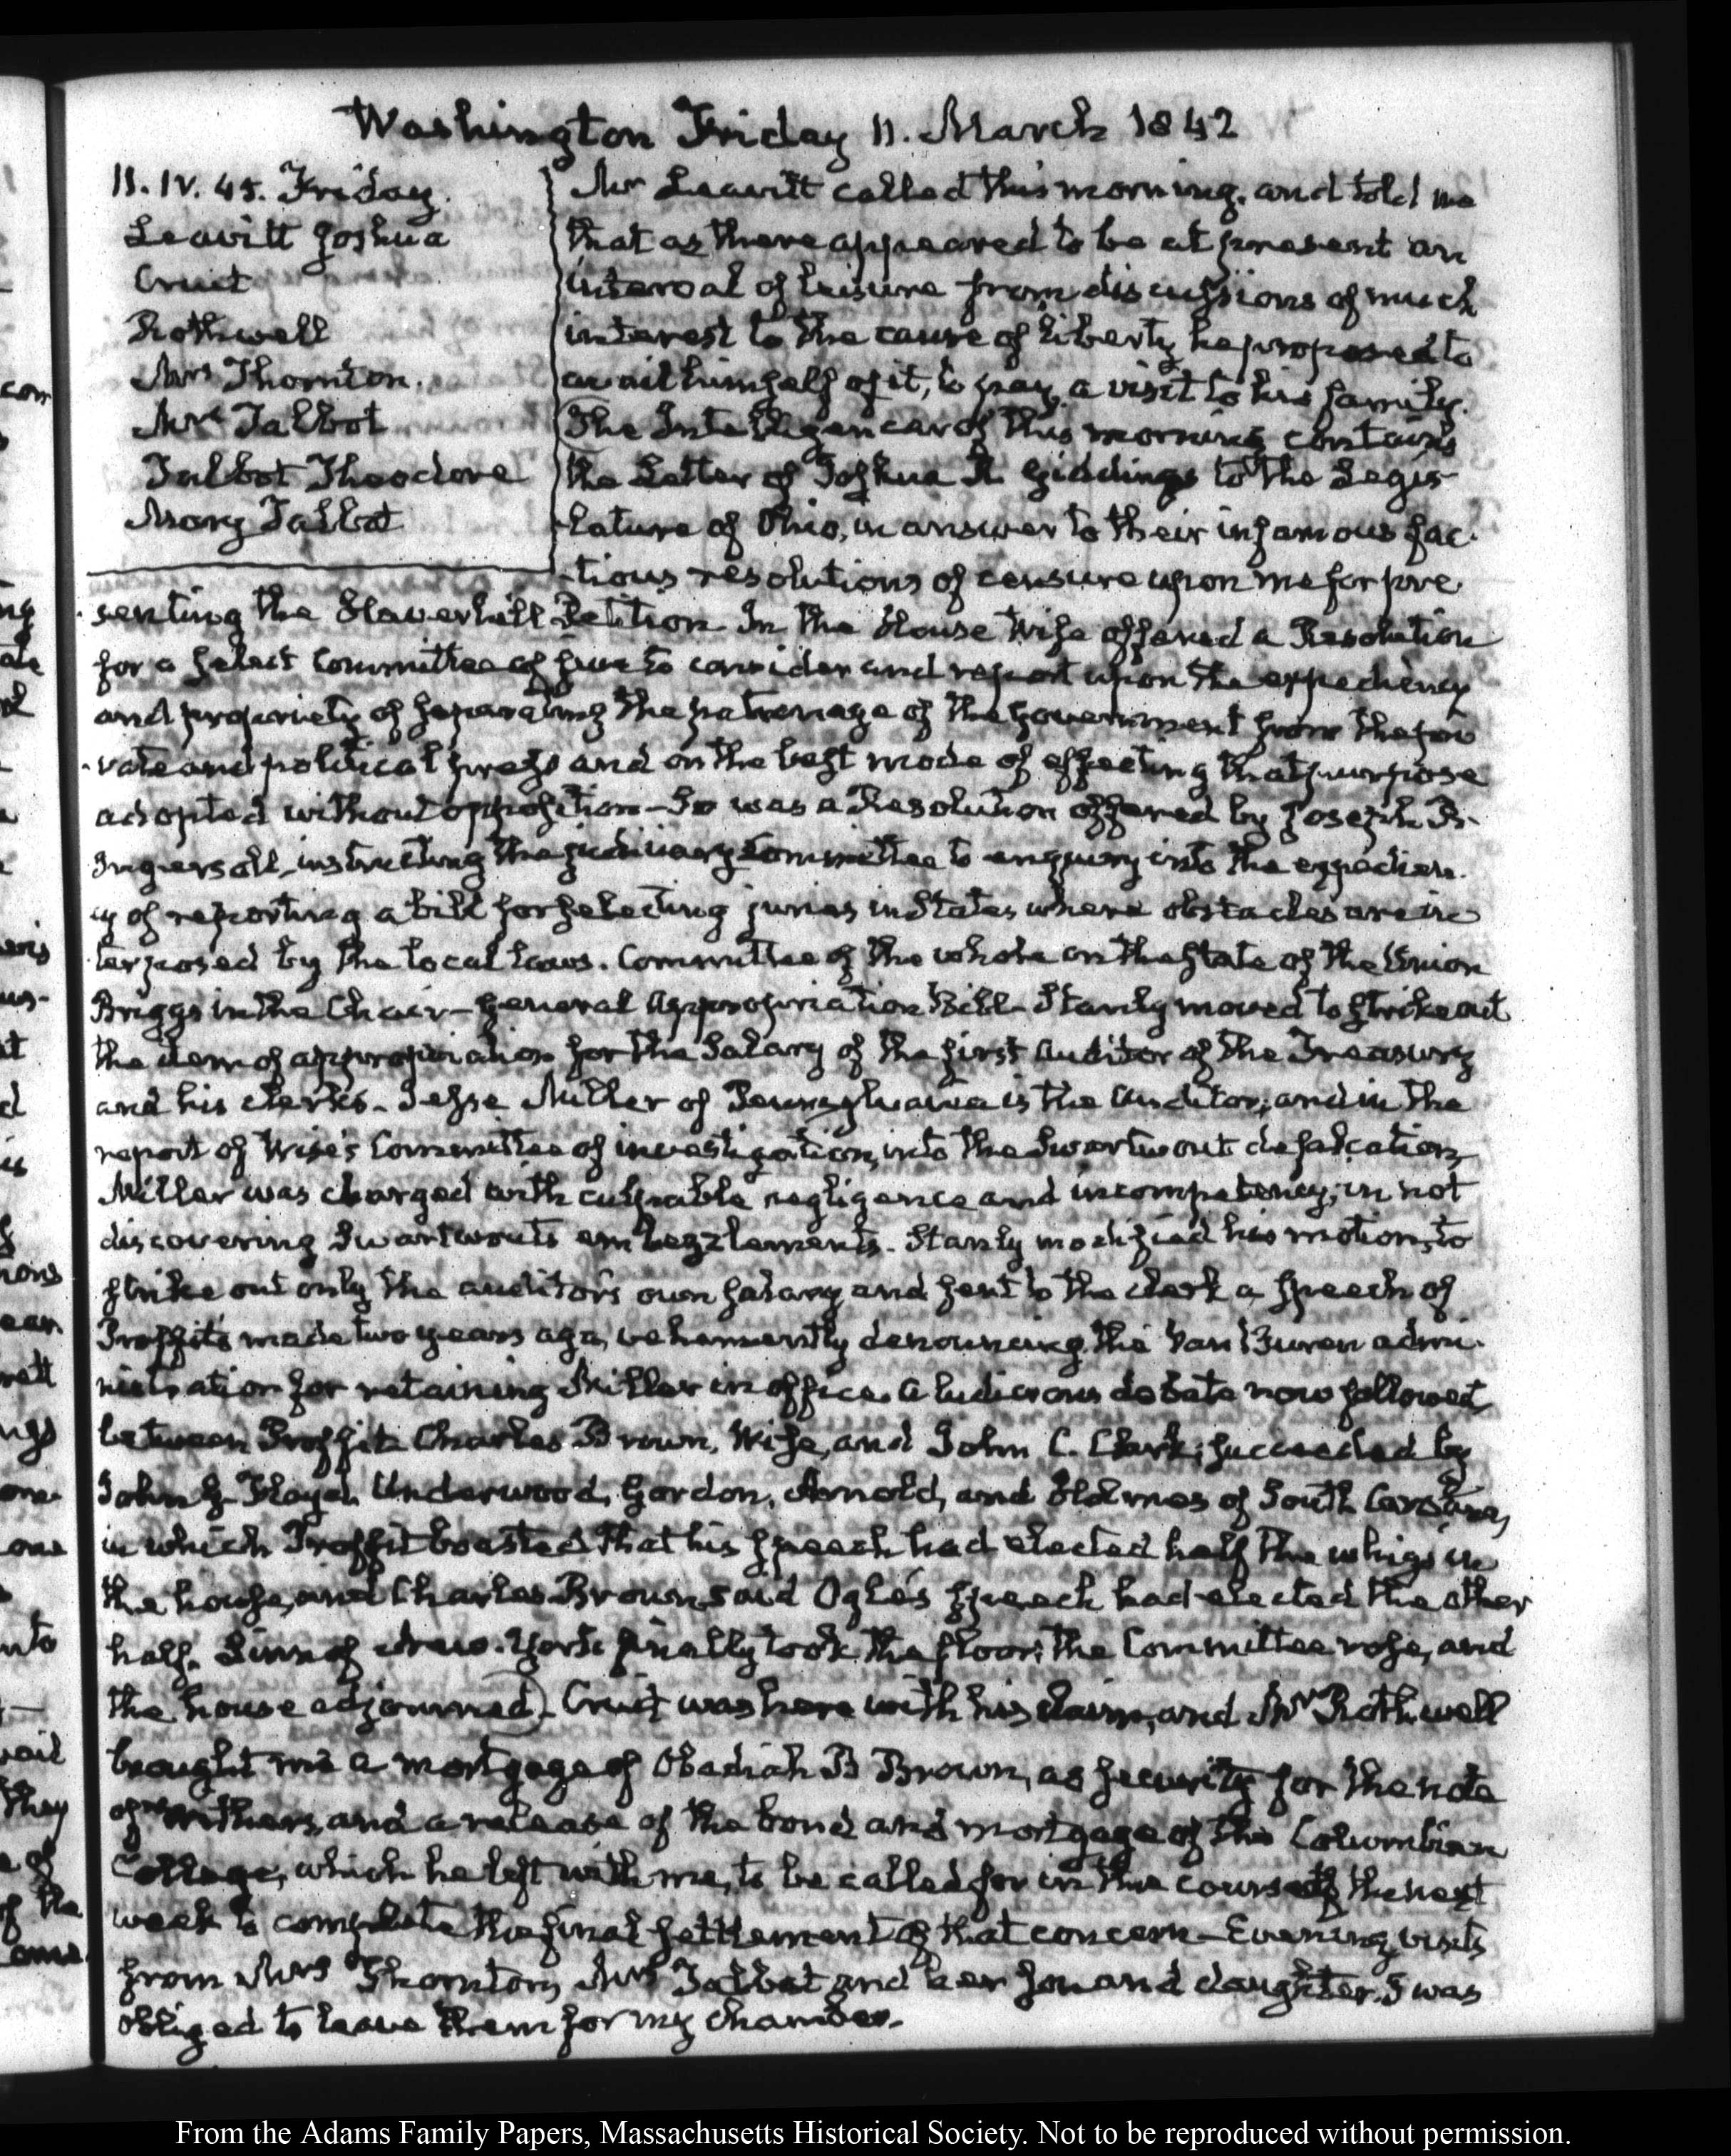 Washington Friday 11. March 1842
11. IV. 45. Friday.
Leavitt Joshua
Cruit
Rothwell
Mrs Thornton.
Mrs Talbot
Talbot Theodore
Mary Talbot
Mr Leavitt called this morning, and told me
that as there appeared to be at present an
interval of leisure from discussions of much
interest to the cause of liberty, he proposed to
avail himself of it, to pay a visit to his family.
The Intelligencer of this morning contains
the Letter of Joshua R. Giddings to the Legis-
-lature of Ohio, in answer to their infamous fac-
-tious resolutions of censure upon me for pre
-senting the Haverhill Petition In the House Wise offered a Resolution
for a select Committee of five to consider and report upon the expediency
and propriety of separating the patronage of the government from the pri
-vate and political press and on the best mode of effecting that purpose
adopted without opposition – So was a Resolution offered by Joseph R.
Ingersoll, instructing the judiciary Committee to enquiry into the expedien-
cy of reporting a bill for selecting juries in States where obstacles are in
terposed by the local laws. Committee of the whole on the state of the Union
Briggs in the Chair – General Appropriation Bill – Stanly moved to strike out
the item of appropriation for the Salary of the first Auditor of the Treasury
and his clerks. Jesse Miller of Pennsylvania is the Auditor; and in the
report of Wise's Committee of investigation, into the Swartwout defalcation,
Miller was charged with culpable negligence and incompetency, in not
discovering Swartwout's embezzlements. Stanly modified his motion, to
strike out only the auditor's own salary and sent to the clerk a speech of
Proffit's made two years ago, vehemently denouncing the Van Buren admi-
nistration for retaining Miller in office. A ludicrous debate now followed,
between Proffit, Charles Brown, Wise, and John C. Clark; succeeded by
John G. Floyd, Underwood, Gordon, Arnold, and Holmes of South Carolina,
in which Proffit boasted that his speech had elected half the whigs in
the house, and Charles Brown said Ogle's speech had elected the other
half. Linn of New-York finally took the floor: the Committee rose, and
the house adjourned) – Cruit was here with his claim, and Mr Rothwell
brought me a mortgage of Obadiah B Brown, as security for the note
of Withers, and a release of the bond and mortgage of the Columbian
College, which he left with me, to be called for in the course of the next
week to complete the final settlement of that concern – Evening visits
from Mrs Thornton, Mrs Talbot and her son and daughter. I was
obliged to leave them for my chamber.
From the Adams Family Papers, Massachusetts Historical Society. Not to be reproduced without permission.